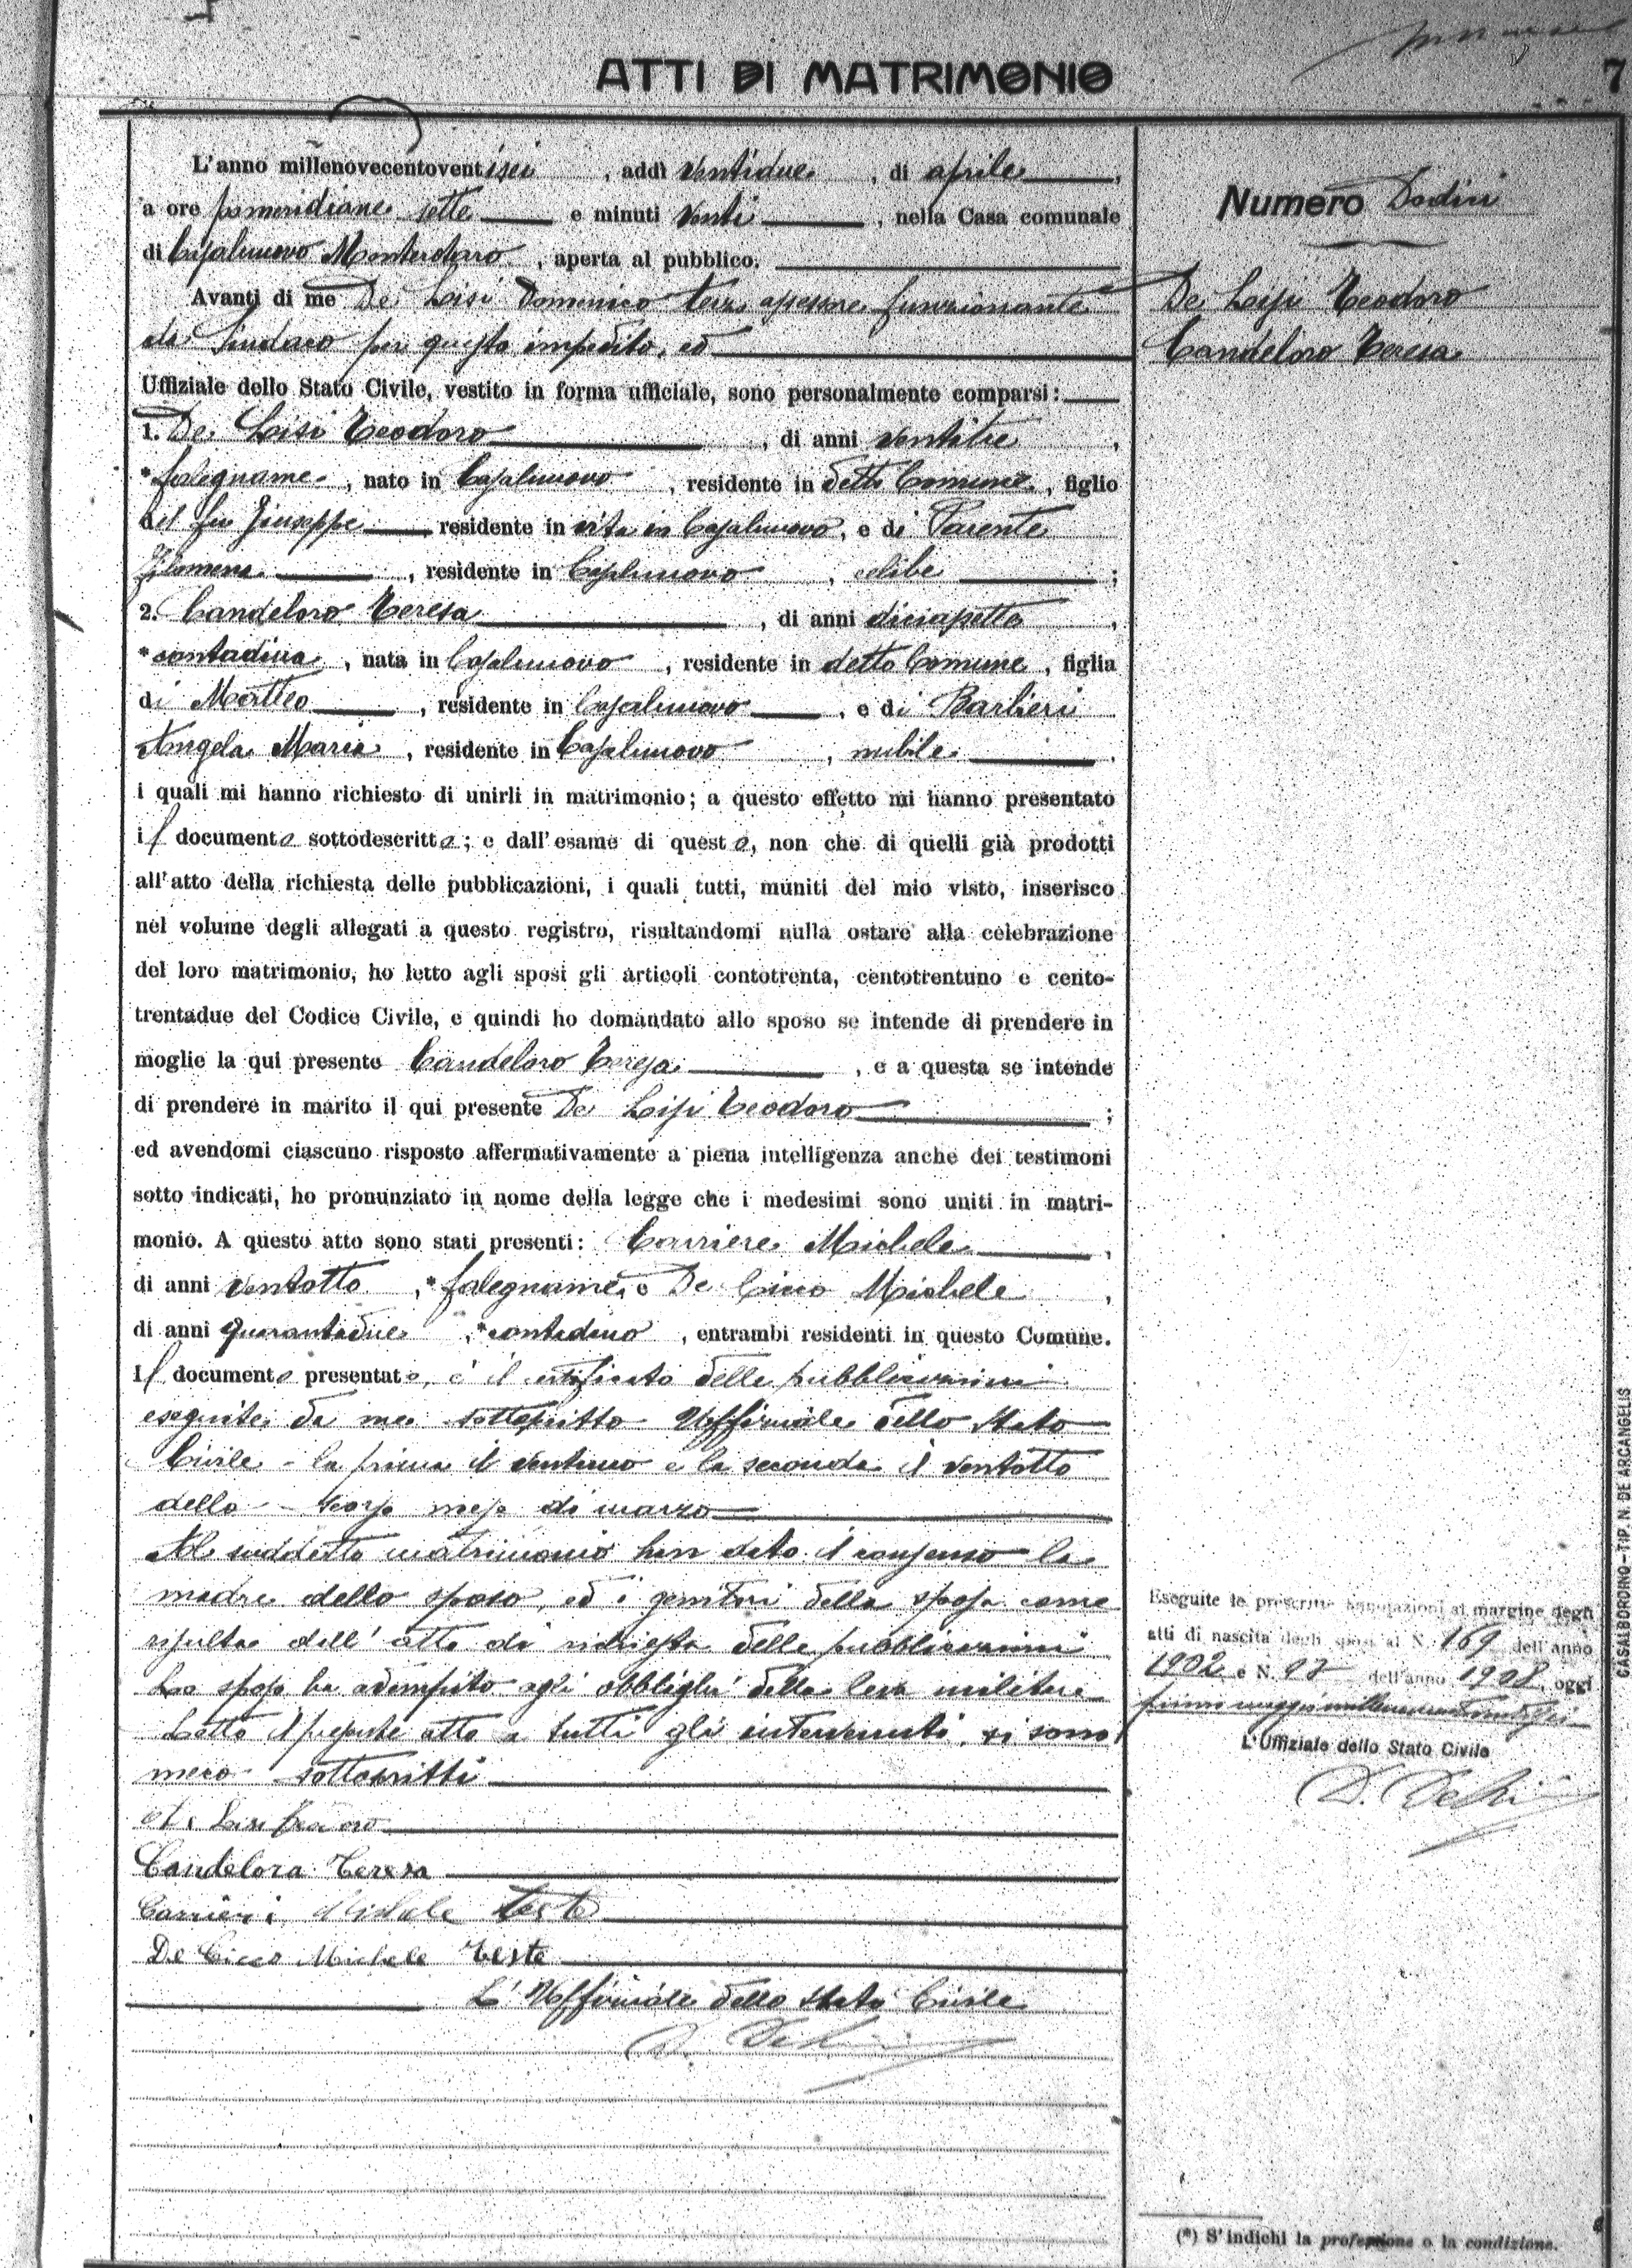 ATTI DI MATRIMONIO
7
L'anno millenovecentoventisei, addì ventidue, di aprile,
a ore pomeridiane sette e minuti venti, nella Casa comunale
di Casalnuovo Monterotaro, aperta al pubblico.
Avanti di me De Lisi Domenico terzo assessore funzionante
da Sindaco per questo impedito, ed
Uffiziale dello Stato Civile, vestito in forma ufficiale, sono personalmente comparsi:
1. De Lisi Teodoro, di anni ventitre,
* falegname, nato in Casalnuovo, residente in detto Comune, figlio
del fu Giuseppe residente in vita in Casalnuovo, e di Parente
Filomena, residente in Casalnuovo, celibe;
2. Candeloro Teresa, di anni diciasette,
* contadina, nata in Casalnuovo, residente in detto Comune, figlia
di Matteo, residente in Casalnuovo, e di Barbieri
Angela Maria, residente in Casalnuovo, nubile.
i quali mi hanno richiesto di unirli in matrimonio; a questo effetto mi hanno presentato
il documento sottodescritto; e dall'esame di questo, non che di quelli già prodotti
all'atto della richiesta delle pubblicazioni, i quali tutti, muniti del mio visto, inserisco
nel volume degli allegati a questo registro, risultandomi nulla ostare alla celebrazione
del loro matrimonio, ho letto agli sposi gli articoli contotrenta, centotrentuno e cento-
trentadue del Codice Civile, e quindi ho domandato allo sposo se intende di prendere in
moglie la qui presente Candeloro Teresa, e a questa se intende
di prendere in marito il qui presente De Lisi Teodoro;
ed avendomi ciascuno risposto affermativamente a piena intelligenza anche dei testimoni
sotto indicati, ho pronunziato in nome della legge che i medesimi sono uniti in matri-
monio. A questo atto sono stati presenti: Carriere Michele,
di anni ventotto, * falegname, e De Cicco Michele,
di anni quarantadue, * contadino, entrambi residenti in questo Comune.
Il documento presentato, è il certificato delle pubblicazioni
eseguite da me sottoscritto Uffiziale dello Stato
Civile - la prima il ventuno e la seconda il ventotto
dello scorso mese di marzo
Al suddetto matrimonio han dato il consenso la
madre dello sposo, ed i genitori della sposa come
risulta dall'atto di richiesta delle pubblicazioni
Lo sposo ha adempito agli obblighi della leva militare
Letto il presente atto a tutti gli intervenuti, si sono
meco sottoscritti
De Lisi Teodoro
Candelora Teresa
Carrieri Michele teste
De Cicco Michele Teste
L'Uffiziale dello Stato Civile
D. De Lisi
Numero Dodici
De Lisi Teodoro
Candeloro Teresa
Eseguite le prescritte annotazioni al margine degli
atti di nascita degli sposi ai N. 169 dell'anno
1902 e N. 97 dell'anno 1908, oggi
primo maggio millenovecentoventisei
L'Uffiziale dello Stato Civile
D. De Lisi
CASALBORDINO - TIP. N. DE ARCANGELIS
(*) S'indichi la professione o la condizione.